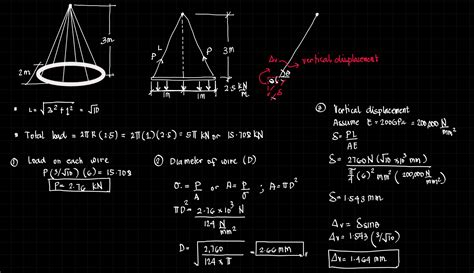 2m
3m
L
P
P
3m
1m
1m
2.5 kN/m
Δv
θ
vertical displacement
δ
* L = √3² + 1² = √10
* Total load = 2πR (2.5) = 2π(1)(2.5) = 5π kN or 15.708 kN
① Load on each wire
P (3/√10) (6) = 15.708
P = 2.76 kN
② Diameter of wire (D)
σ = P/A or A = P/σ ; A = πD²
πD² = 2.76 × 10³ N / 124 N/mm²
D = √2,760 / 124 × π = 2.66 mm
③ Vertical displacement
Assume E = 200GPa = 200,000 N/mm²
δ = PL/AE
δ = 2760N (√10 × 10³ mm) / π/4 (6)² mm² (200,000 N/mm²)
δ = 1.543 mm
Δv = δ sinθ
Δv = 1.543 (3/√10)
Δv = 1.464 mm